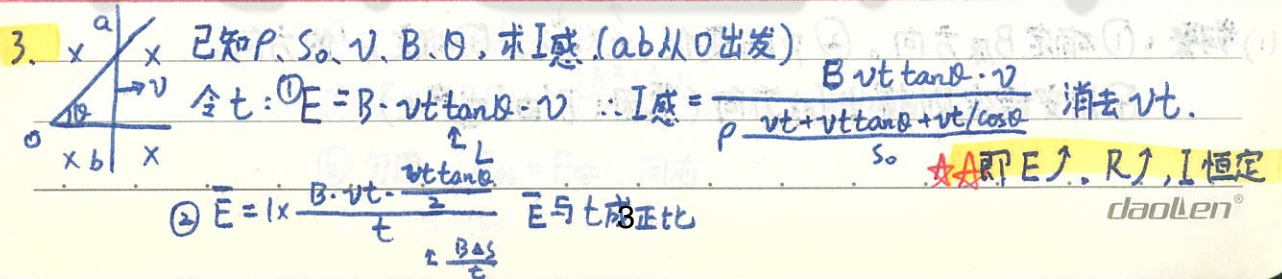 3. 已知ρ、S₀、v、B、θ,求I感.(ab从O出发)
a × × →v θ O × b ×
令t:①E=B·vt tanθ·v ∴I感= B vt tanθ·v / ρ (vt+vt tanθ+vt/cosθ)/S₀ 消去vt.
↑L
☆☆即E↑、R↑,I恒定
②Ē=1×(B·vt·(vt tanθ)/2)/t Ē与t成正比
↑ BΔS/t
3
daolen®